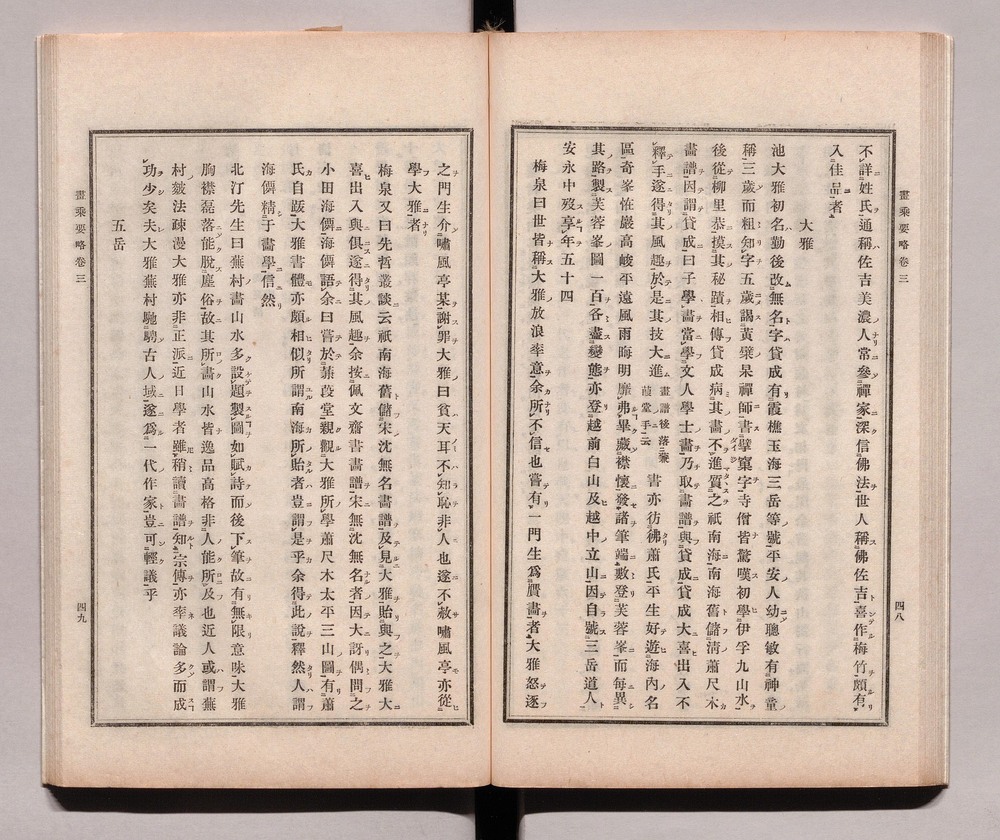 畫乘要略卷三
四八
不詳姓氏通稱佐吉美濃人常參禪家深信佛法世人稱佛佐吉喜作梅竹頗有
入佳品者
大雅
池大雅初名勤後改無名字貸成有霞樵玉海三岳等號平安人幼聰敏有神童
稱三歲而粗知字五歲謁黃檗杲禪師書擘窠字寺僧皆驚嘆初學伊孚九山水
後從柳里恭摸其秘蹟相傳貸成病其畫不進質之祇南海南海舊儲淸蕭尺木
畫譜因謂貸成曰子學畫當學文人學士畫乃取畫譜與貸成貸成大喜出入不
釋手遂得其風趣於是其技大進畫譜後落蒹葭堂手云書亦彷彿蕭氏平生好遊海內名
區奇峯恠巖高峻平遠風雨晦明靡弗畢藏襟懷發諸筆端數登芙蓉峯而每異
其路製芙蓉峯圖一百各盡變態亦登越前白山及越中立山因自號三岳道人
安永中歿享年五十四
梅泉曰世皆稱大雅放浪率意余所不信也嘗有一門生爲贋畫者大雅怒逐
之門生介嘯風亭某謝罪大雅曰貧天耳不知恥非人也遂不赦嘯風亭亦從
學大雅者
梅泉又曰先哲叢談云祇南海舊儲宋沈無名畫譜及見大雅貽與之大雅大
喜出入與俱遂得其風趣余按佩文齋書畫譜宋無沈無名者因大訝偶問之
小田海僊海僊語余曰嘗於蒹葭堂親觀大雅所學蕭尺木太平三山圖有蕭
氏自跋大雅書體亦頗相似所謂南海所貽者豈謂是乎余得此說釋然人謂
海僊精于畫學信然
北汀先生曰蕪村畫山水多設題製圖如賦詩而後下筆故有無限意味大雅
胸襟磊落能脫塵俗故其所畫山水皆逸品高格非人能所及也近人或謂蕪
村皴法疎漫大雅亦非正派近日學者雖稍讀畫譜知宗傳亦率議論多而成
功少矣夫大雅蕪村馳騁古人域遂爲一代作家豈可輕議乎
五岳
畫乘要略卷三
四九